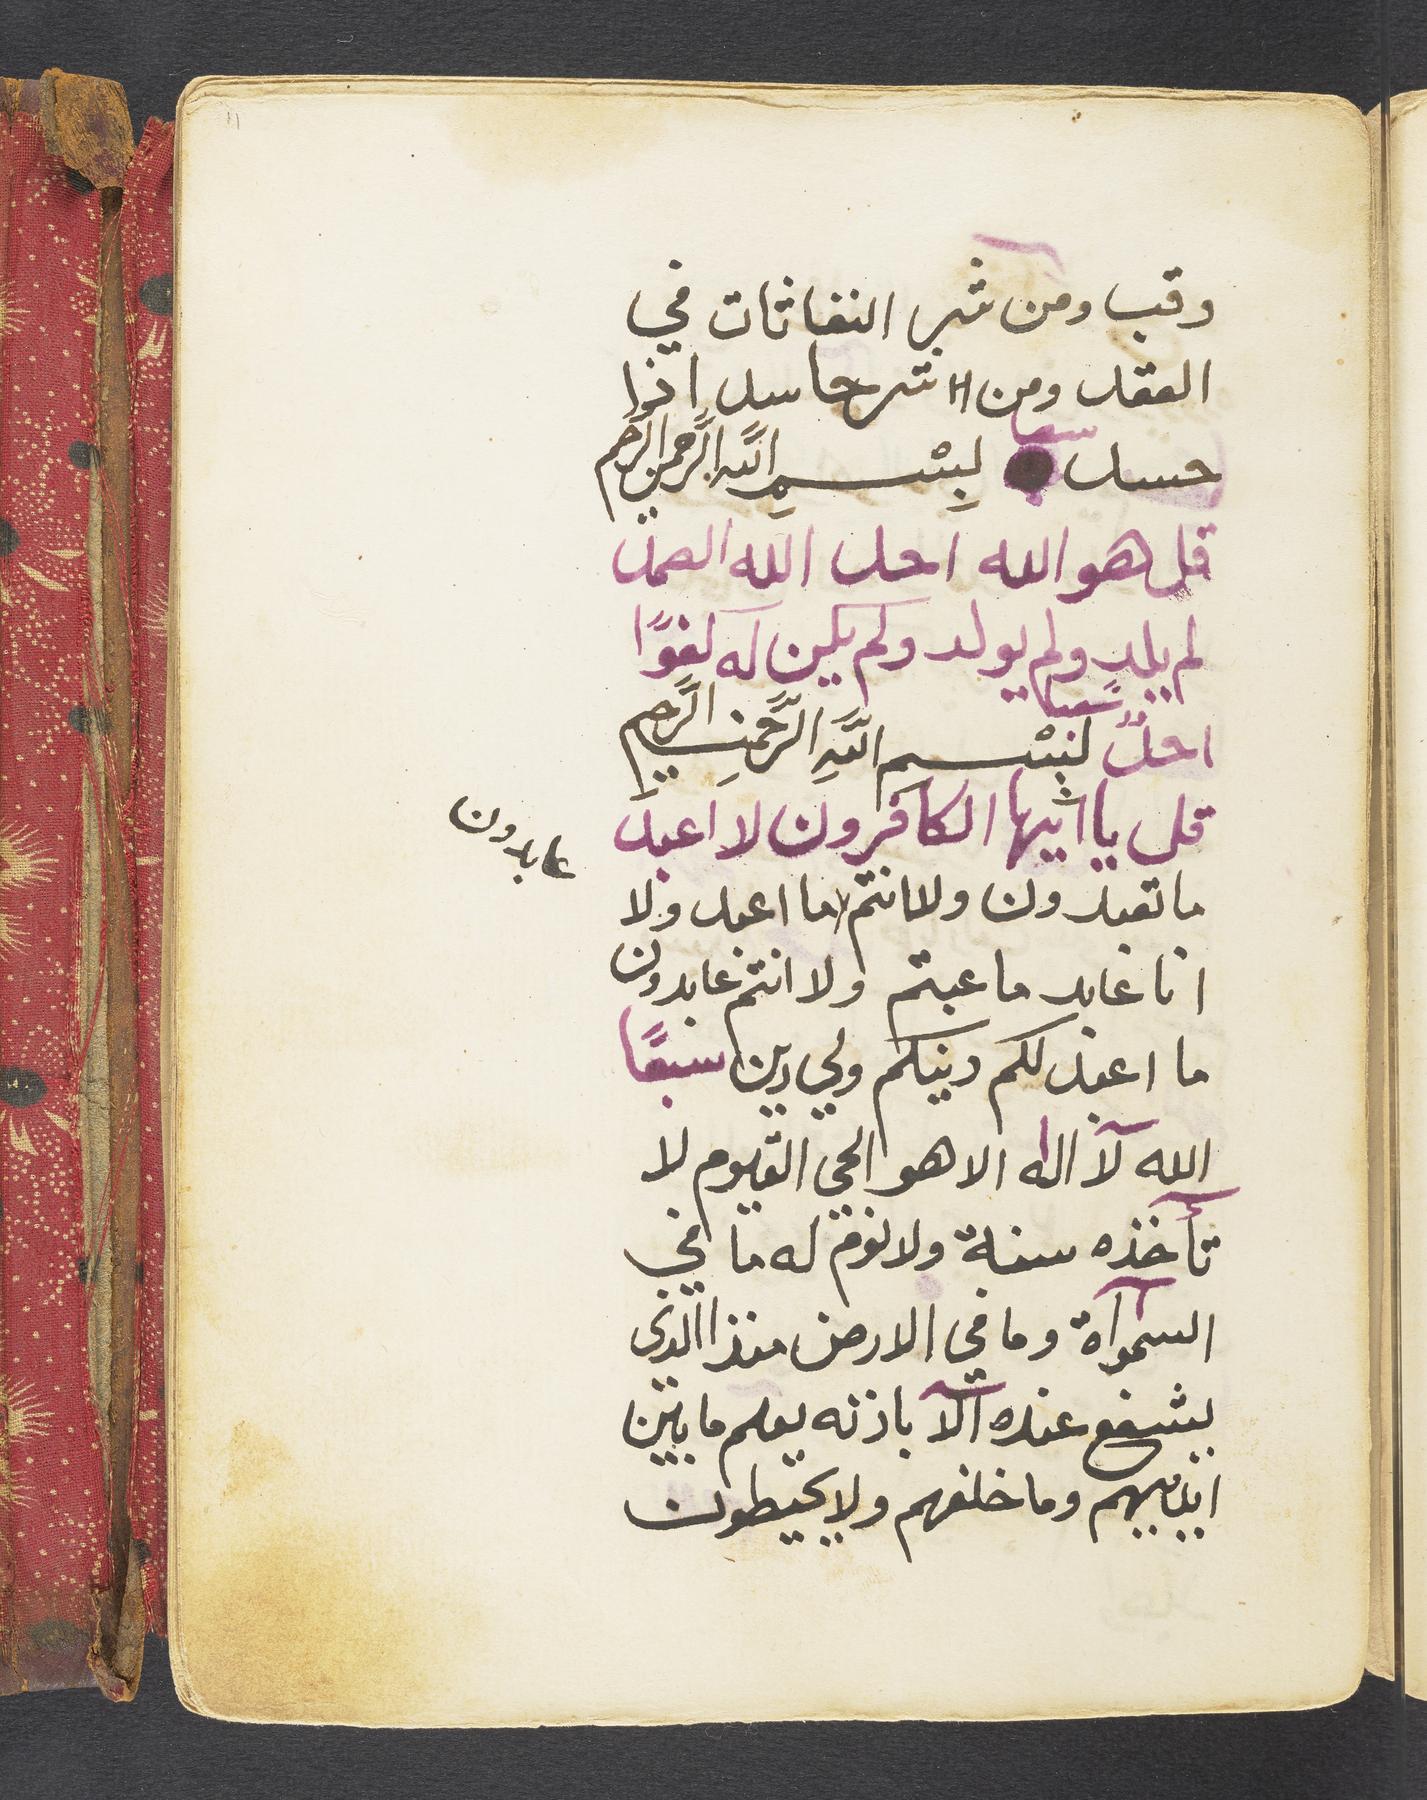 وقب ومن شر النفاثات في
العقد ومن شر حاسد اذا
حسد سبعا بِسْمِ اللَّهِ الرَّحمنِ الرَّحِيم
قل هو الله احد الله الصمد
لم يلد ولم يولد ولم يكن له كفوًا
احدٌ سبعًا بِسْمِ اللَّهِ الرَّحْمنِ الرَّحِيمِ
قل يا ايها الكافرون لا اعبد
ما تعبدون ولا انتم ما اعبد ولا
عابدون
انا عابد ما عبتم ولا انتم عابدون
ما اعبد لكم دينكم ولي دين سبعًا
الله لآ اله الا هو الحي القيوم لا
تأخذه سنة ولا نوم له ما في
السمواة وما في الارض منذا الذي
يشفع عنده الآ باذنه يعلم ما بين
ايديهم وما خلفهم ولا يحيطون